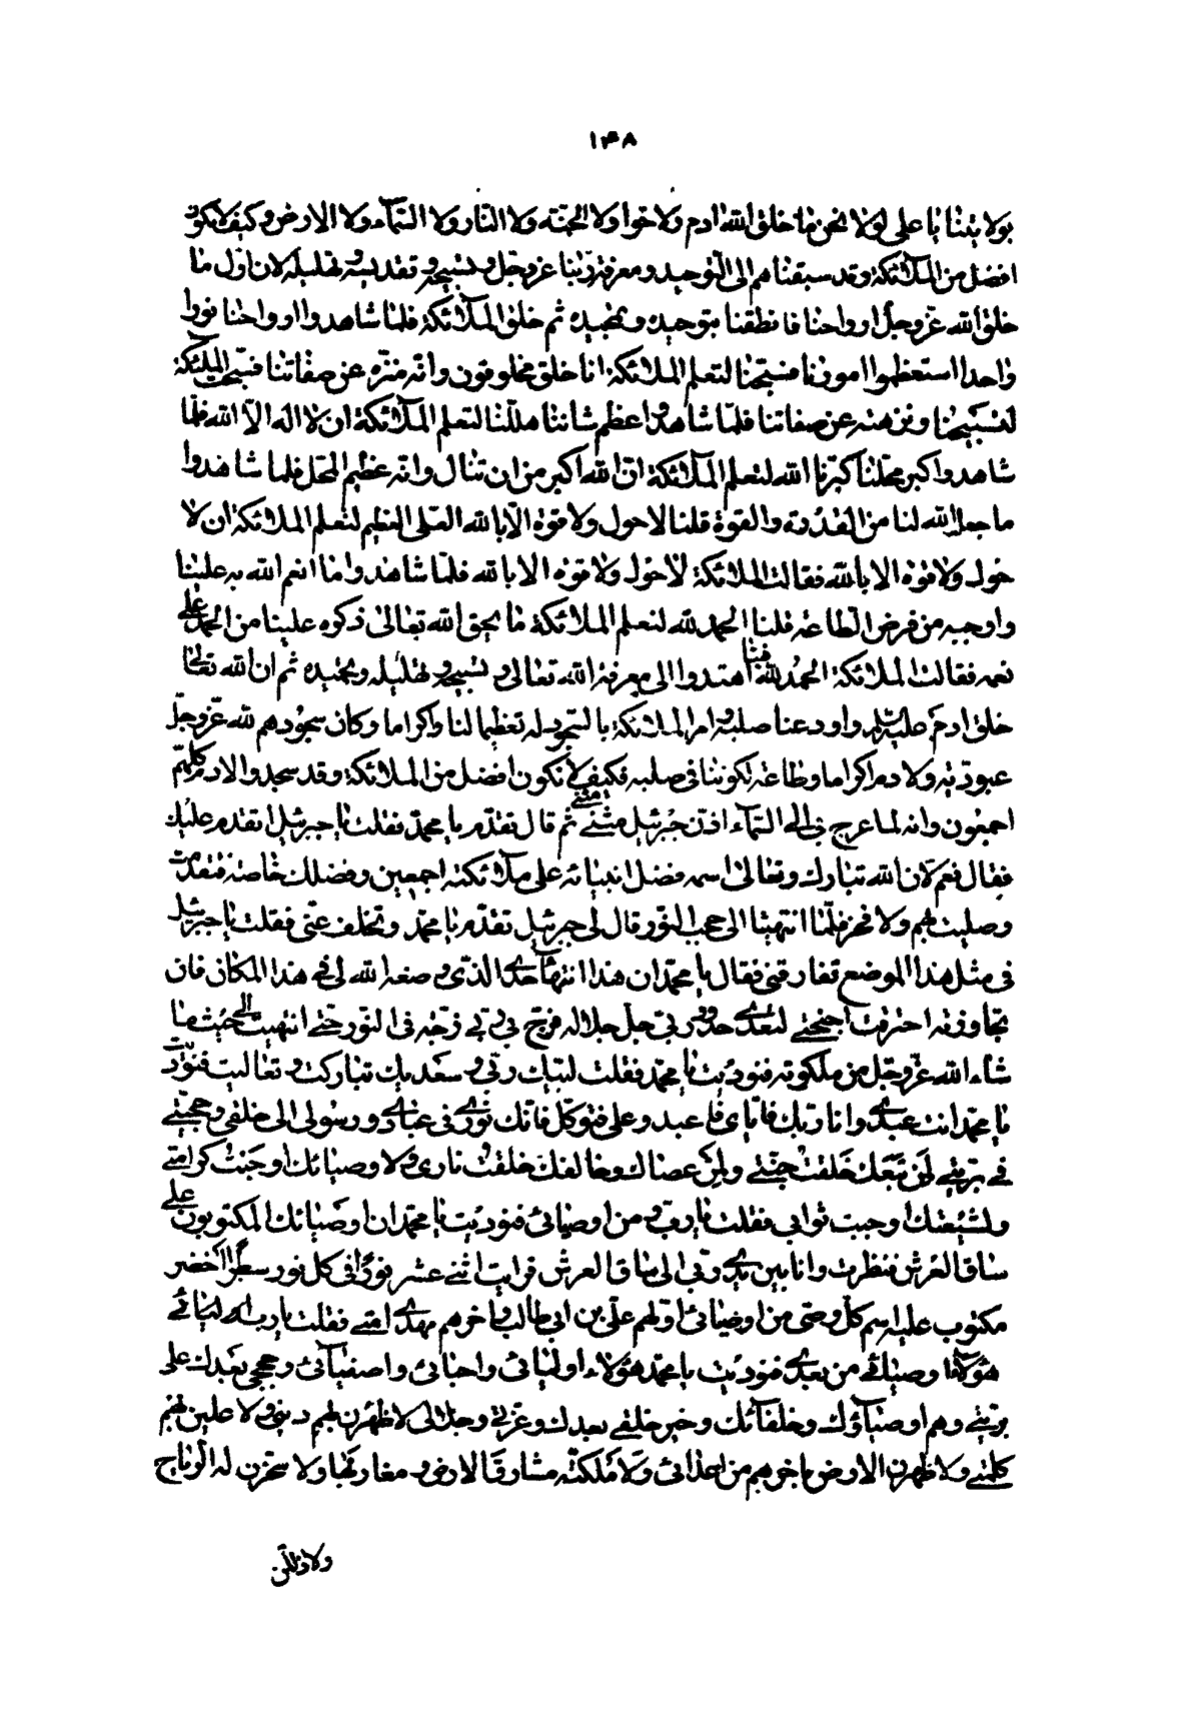 ۱۴۸
بولايتنا يا على لولا نحن ما خلق الله ادم ولا حوا ولا الجنّة ولا النّار ولا السّمآء ولا الارض وكيف لا نكون
افضل من الملائكة وقد سبقناهم الى التّوحيد ومعرفة ربّنا عزوجل وتسبيحه وتقديسه وتهليله لان اوّل ما
خلق الله عزّ وجلّ ارواحنا فانطقنا بتوحيده وتمجيده ثم خلق الملآئكة فلما شاهدوا ارواحنا نورا
واحدا استعظموا امورنا فسبّحنا لتعلم الملائكة انا خلق مخلوقون وانّه منزّه عن صفاتنا فسبّحت الملئكة
لتسبيحنا ونزهته عن صفاتنا فلمّا شاهدوا عظم شاننا هلّلنا لتعلم الملآئكة ان لا اله الاّ الله فلمّا
شاهدوا كبر محلّنا كبّرنا الله لتعلم الملآئكة انّ الله اكبر من ان تنال وانّه عظيم المحل فلما شاهدوا
ما جعل الله لنا من القدرة والقوة قلنا لا حول ولا قوة الّا بالله العلى العظيم لتعلم الملائكة ان لا
حول ولا قوة الا بالله فقالت الملائكة لا حول ولا قوة الا بالله فلمّا شاهدوا ما انعم الله به علينا
واوجبه من فرض الطاعة قلنا الحمد لله لتعلم الملائكة ما يحق الله تعالى ذكره علينا من الحمد على
نعمه فقالت الملائكة الحمد لله فبنا اهتدوا الى معرفة الله تعالى وتسبيحه وتهليله وتمجيده ثم ان الله تعالى
خلق ادم عليه السلام واودعنا صلبه وامر الملائكة بالسّجود له تعظيما لنا واكراما وكان سجودهم لله عزّوجلّ
عبودية ولادم اكراما وطاعة لكوننا فى صلبه فكيف لا نكون افضل من الملائكة وقد سجدوا لادم كلهم
اجمعون وانه لما عرج بى الى السّمآء اذّن جبرئيل مثنى مثنى ثم قال تقدّم يا محمّد فقلت يا جبرئيل اتقدم عليك
فقال نعم لان الله تبارك وتعالى اسمه فضل انبيائه على ملآئكته اجمعين وفضلك خاصة فتقدمت
وصليت بهم ولا فخر فلمّا انتهينا الى حجب النّور قال لى جبرئيل تقدّم يا محمّد وتخلف عنّى فقلت يا جبرئيل
فى مثل هذا الموضع تفارقنى فقال يا محمّد ان هذا انتهآء حدى الذى وضعه الله لى فى هذا المكان فان
تجاوزته احترقت اجنحتى لتعدى حدود ربى جل جلاله فزج بى ربى زجّة فى النور حتى انتهيت الى حيث ما
شاء الله عزّوجل من ملكوته فنوديت يا محمّد فقلت لبّيك ربّى وسعديك تباركت وتعاليت فنوديت
يا محمّد انت عبدى وانا ربك فاياى فاعبد وعلى فتوكّل فانّك نورى فى عبادى ورسولى الى خلقى وحجّتى
فى بريتى لمن تبعك خلقت جنّتى ولمن عصاك وخالفك خلقت نارى ولاوصيائك اوجبت كرامتى
ولشيعتك اوجبت ثوابى فقلت يا رب ومن اوصيائى فنوديت يا محمّد ان اوصيائك المكتوبون على
ساق العرش فنظرت وانا بين يدى ربى الى ساق العرش فرايت اثنى عشر نورًا فى كل نور سطرا اخضر
مكتوب عليه اسم كلّ وصى من اوصيائى اوّلهم علىّ بن ابى طالب واخرهم مهدى امتى فقلت يا رب
هؤلآء اوصيائى من بعدى فنوديت يا محمّد هؤلاء اوليائى واحبائى واصفيآئى وحججى بعدك على
بريتى وهم اوصيآؤك وخلفآئك وخير خلقى بعدك وعزتى وجلالى لاظهرن بهم دينى ولاعلين بهم
كلمتى ولاظهرن الارض باخرهم من اعدائى ولاملكنّه مشارق الارض ومغاربها ولاسخرن له الرياح
ولاذللّن